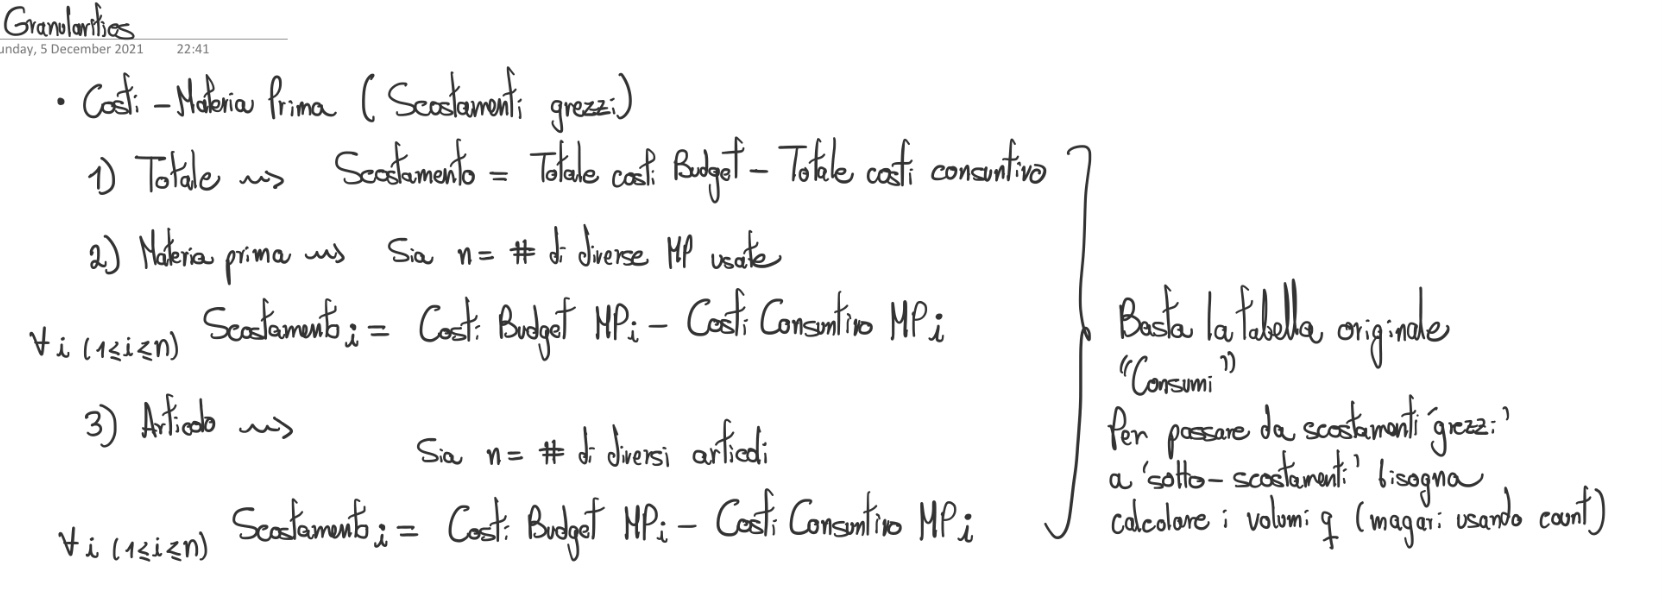 Granularities
unday, 5 December 2021 22:41
• Costi - Materia Prima (Scostamenti grezzi)
1) Totale ⇝ Scostamento = Totale costi Budget - Totale costi consuntivo
2) Materia prima ⇝ Sia n = # di diverse MP usate
∀ i (1≤i≤n) Scostamento i = Costi Budget MP i - Costi Consuntivo MP i
3) Articolo ⇝
Sia n = # di diversi articoli
∀ i (1≤i≤n) Scostamento i = Costi Budget MP i - Costi Consuntivo MP i
Basta la tabella originale
"Consumi"
Per passare da scostamenti 'grezzi'
a 'sotto-scostamenti' bisogna
calcolare i volumi q (magari usando count)